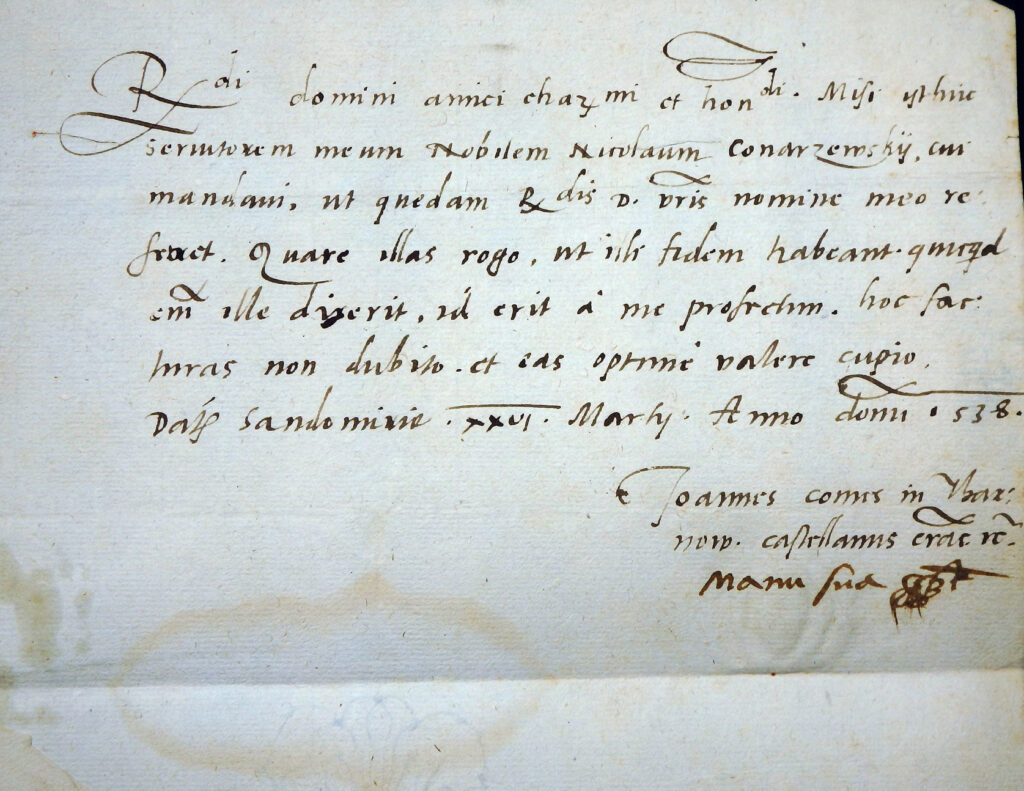 Rdi domini amici charmi et hondi. Misi isthuc
servitorem meum Nobilem Nicolaum Conarzewskij, cui
mandavi, ut quedam Rdis D. vris nomine meo re:
ferret. Quare illas rogo, ut illi fidem habeant. quicqd
em ille dixerit, id erit à me profectum. hoc fac:
turas non dubito. et eas optimè valere cupio.
Dat Sandomirie . XXVI . Martij . Anno domi 1538.
Joannes comes in Thar:
now. castellanus crac: re:
Manu sua sspt